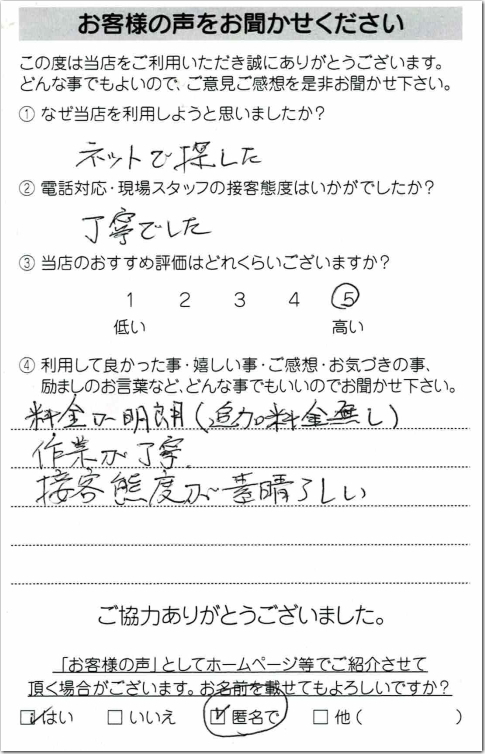 お客様の声をお聞かせください
この度は当店をご利用いただき誠にありがとうございます。
どんな事でもよいので、ご意見ご感想を是非お聞かせ下さい。
① なぜ当店を利用しようと思いましたか？
ネットで探した
② 電話対応・現場スタッフの接客態度はいかがでしたか？
丁寧でした
③ 当店のおすすめ評価はどれくらいございますか？
1 2 3 4 5
低い 高い
④ 利用して良かった事・嬉しい事・ご感想・お気づきの事、
励ましのお言葉など、どんな事でもいいのでお聞かせ下さい。
料金が明朗(追加料金無し)
作業が丁寧
接客態度が素晴らしい
ご協力ありがとうございました。
「お客様の声」としてホームページ等でご紹介させて
頂く場合がございます。お名前を載せてもよろしいですか？
☑はい □いいえ ☑匿名で □他( )